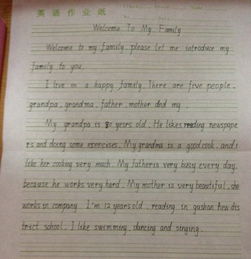 英语作业纸
Welcome To My Family
Welcome to my family. please let me introduce my
family to you.
I live in a happy family. There are five people.
grandpa, grandma, father, mother and my.
My grandpa is 8 years old. He likes reading newspape
rs and doing some exercises. My grandma is a good cook. and I
like her cooking very much. My father is very busy every day.
because he works very hard. My mother is very beautiful. she
works in company. I'm 12 years old. reading in gushan
trict school. I like swimming, dancing and singing.